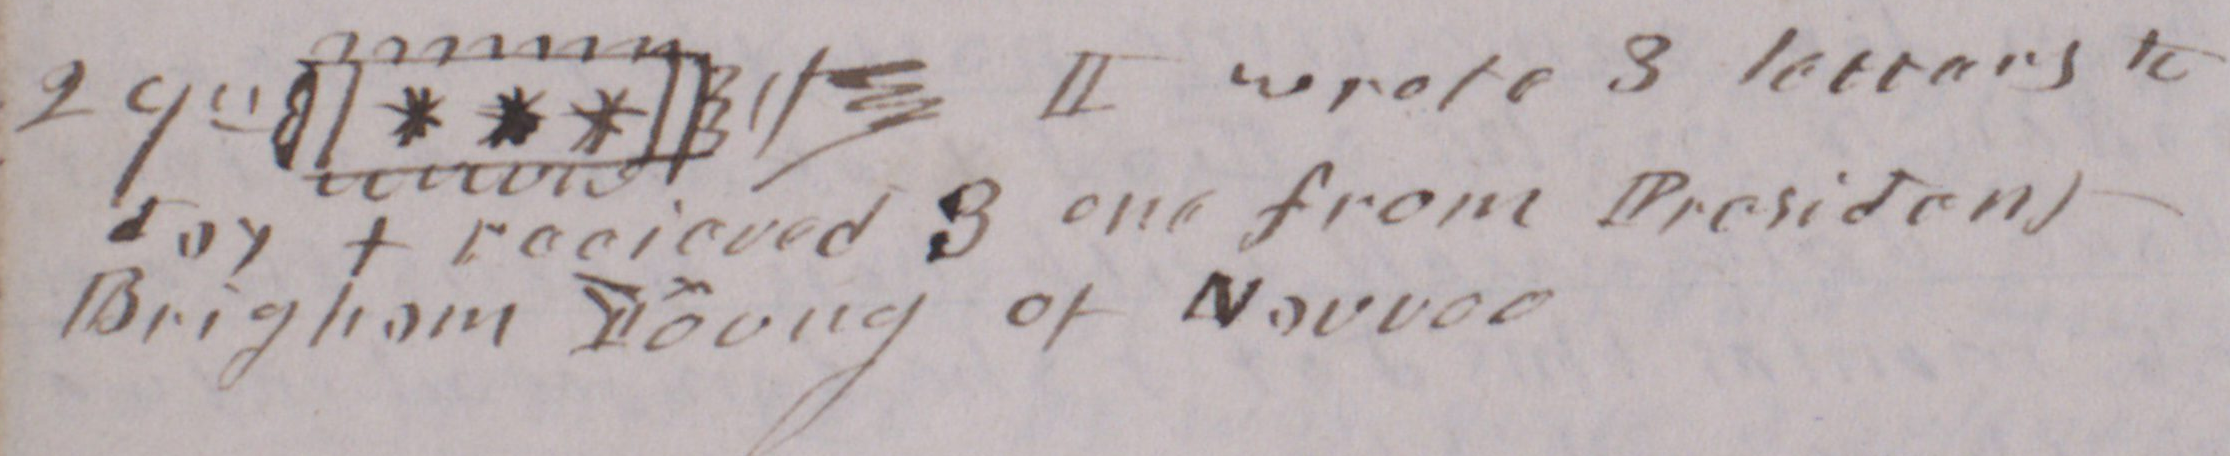 29th *** I wrote 3 letters to
day + recieved 3 one from President
Brigham Young of Nauvoo